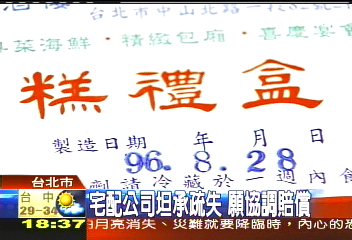 台北市中山北路一段
粵菜海鮮·精緻包廂·喜慶宴
糕禮盒
製造日期 年 月 日
96.8.28
請冷藏於一週內食
台北市
台中
29-34
宅配公司坦承疏失 願協調賠償
18:37
月亮消失、災難就要降臨時，內心的恐